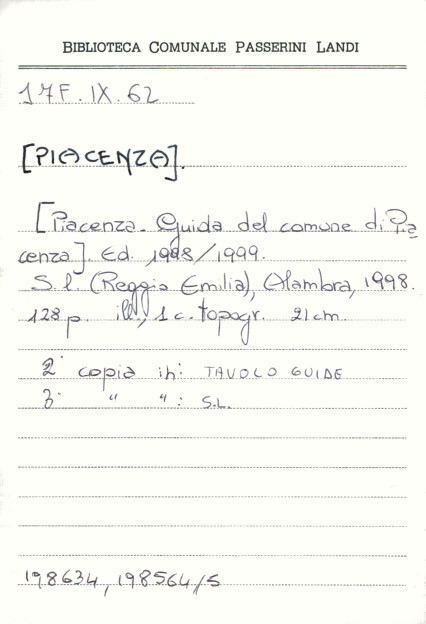 BIBLIOTECA COMUNALE PASSERINI LANDI
17F.IX.62
[PIACENZA].
[Piacenza. Guida del comune di Pia
cenza]. Ed. 1998/1999.
S.l. (Reggio Emilia), Alambra, 1998.
128 p. ill., 1 c. topogr. 21 cm.
2ª copia in: TAVOLO GUIDE
3ª " " : S.L.
198634, 198564/5